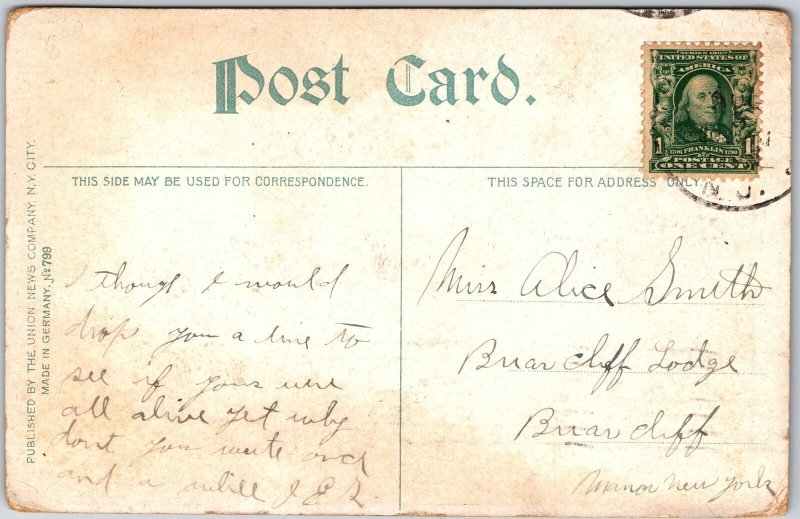 Post Card.
THIS SIDE MAY BE USED FOR CORRESPONDENCE.
THIS SPACE FOR ADDRESS ONLY.
SERIES 1902
UNITED STATES OF
AMERICA
1 1706 FRANKLIN 1790 1
POSTAGE
ONE CENT
PUBLISHED BY THE UNION NEWS COMPANY, N.Y. CITY.
MADE IN GERMANY. No 799
I though I would
drop you a line to
see if you were
all alive yet why
dont you write once
and a while J E S
Miss Alice Smith
Briarcliff Lodge
Briarcliff
Manor New York